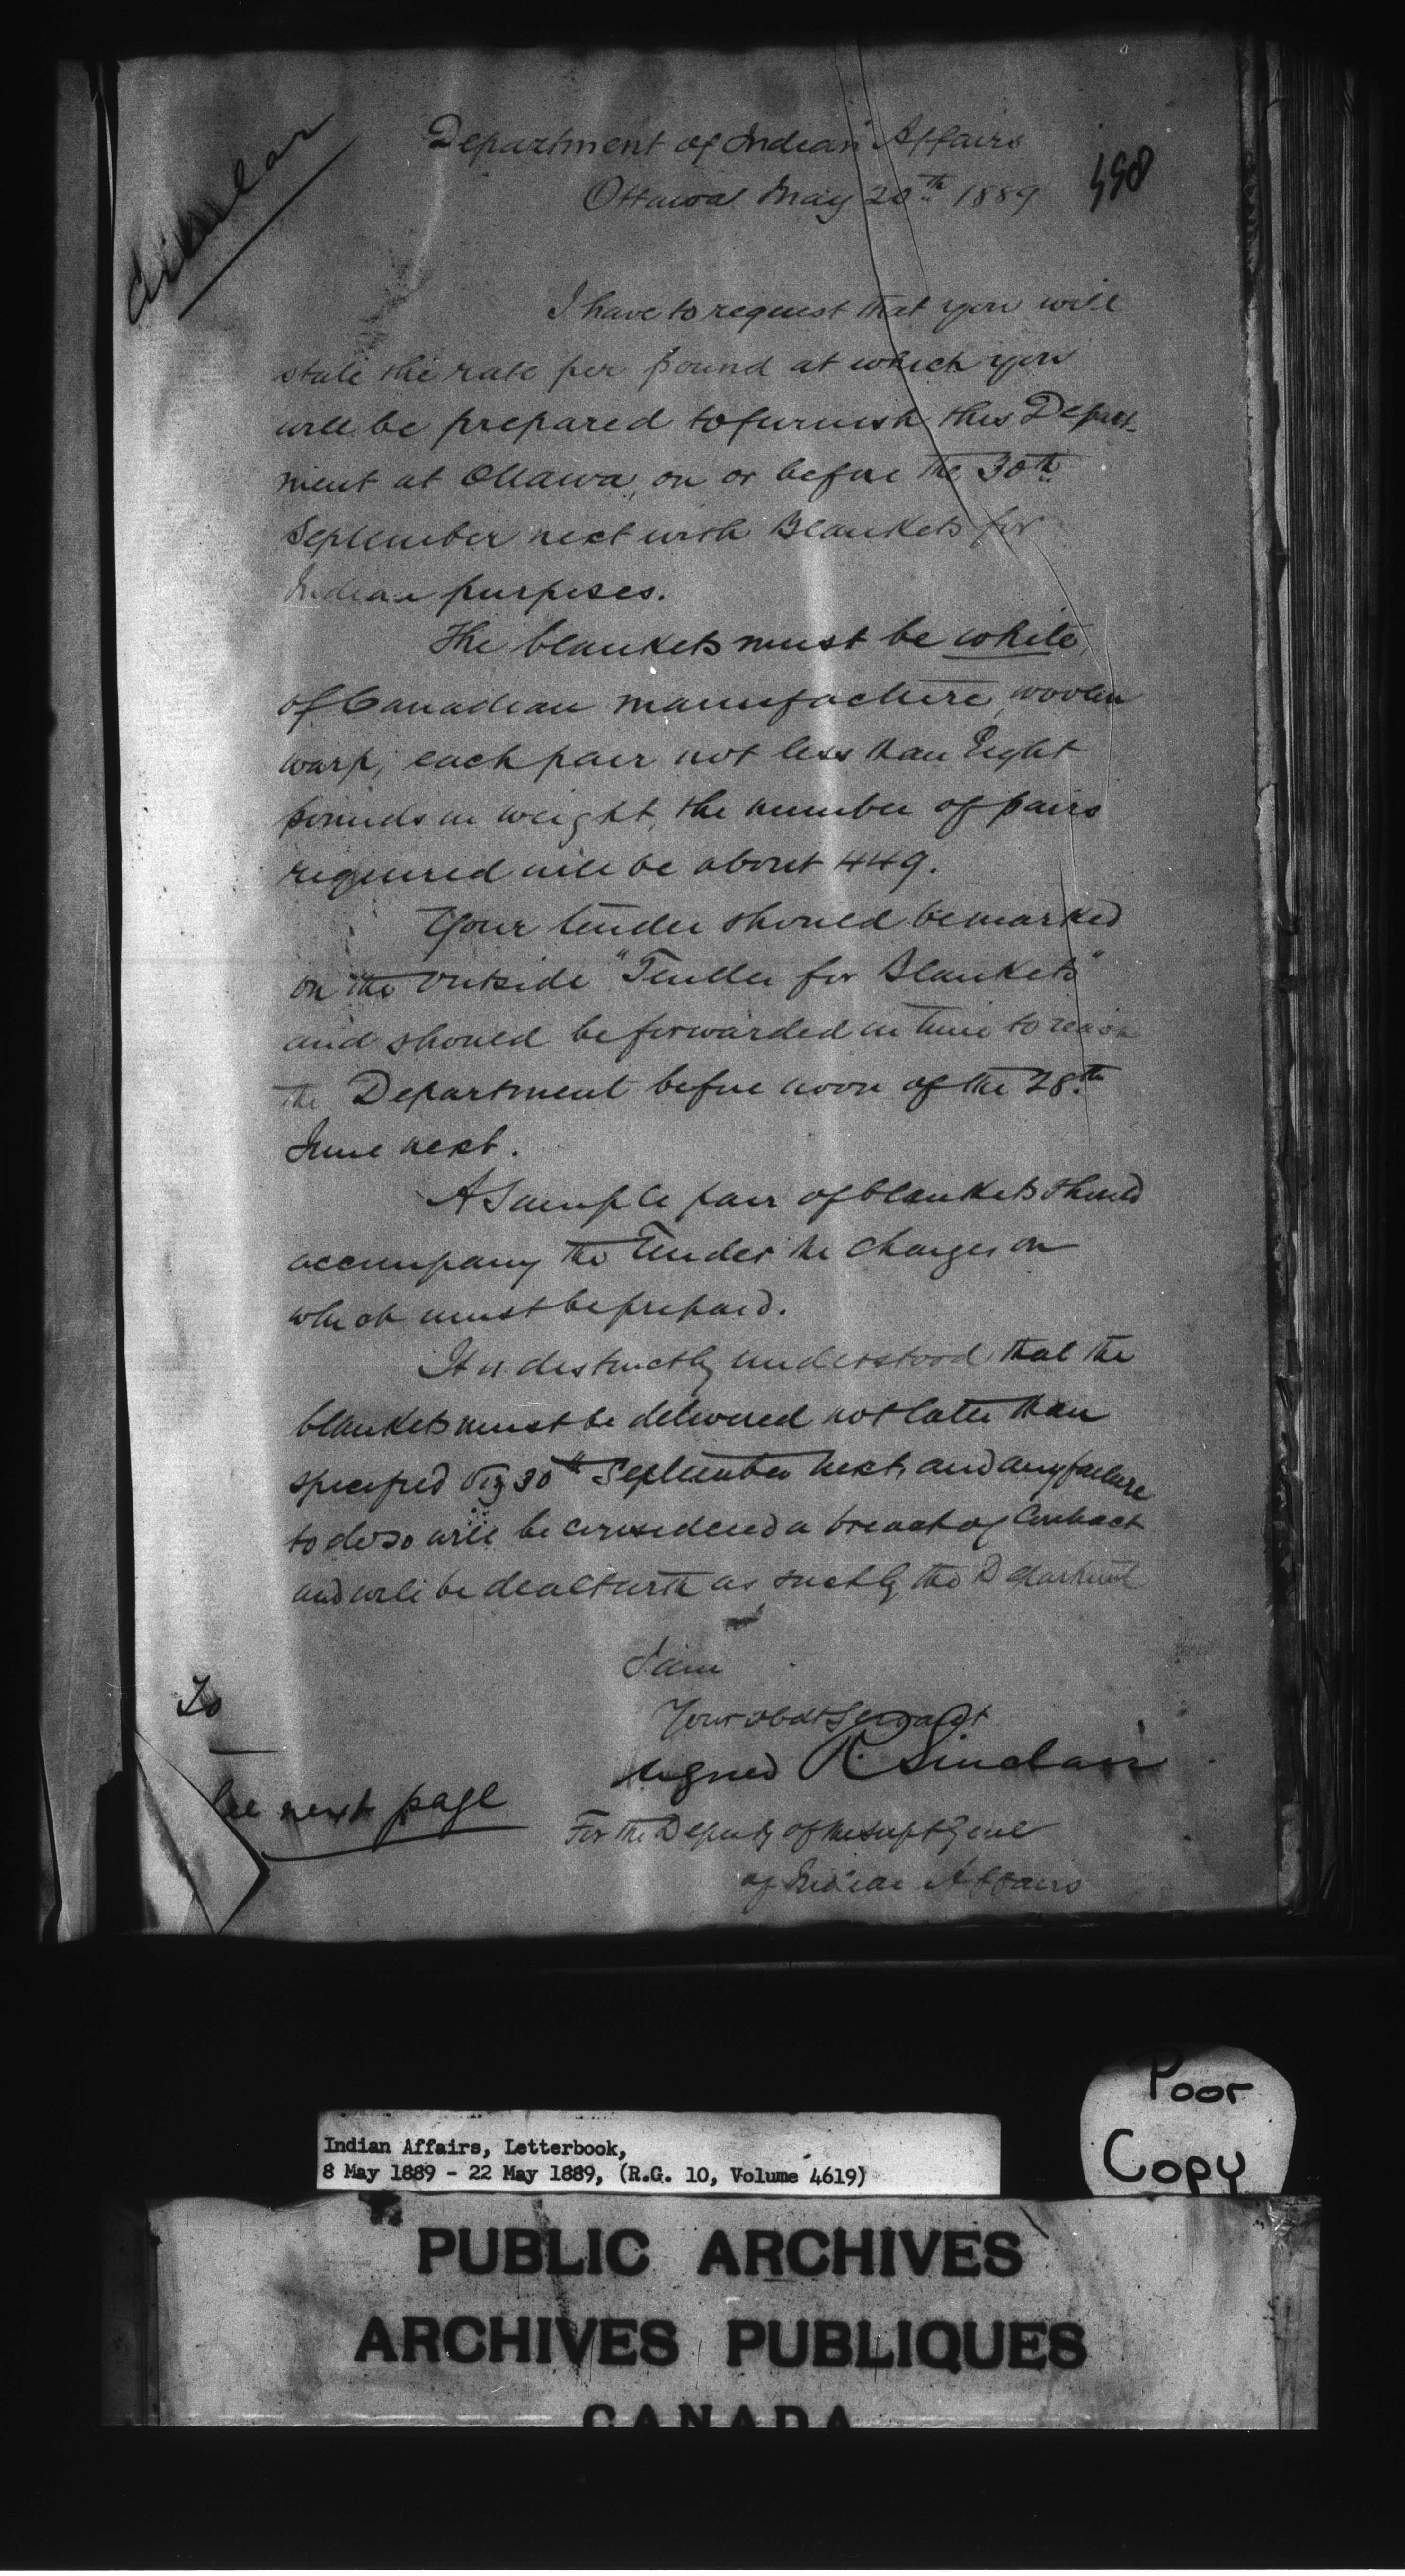 Circular
Department of Indian Affairs
Ottawa May 20th 1889
558
I have to request that you will
state the rate per pound at which you
will be prepared to furnish this Depart-
ment at Ottawa, on or before the 30th
September next with Blankets for
Indian purposes.
The blankets must be white,
of Canadian manufacture, woolen
warp, each pair not less than Eight
pounds in weight, the number of pairs
required will be about 449.
Your tender should be marked
on the outside "Tender for Blankets"
and should be forwarded in time to reach
the Department before noon of the 28th
June next.
A Sample pair of blankets should
accompany the Tender the charges on
which must be prepaid.
It is distinctly understood that the
blankets must be delivered not later than
specified viz 30th September next, and any failure
to do so will be considered a breach of Contract
and will be dealt with as such by the Department
I am
Your obdt Servant
signed R. Sinclair
For the Deputy of the Supt Genl
of Indian Affairs
To
See next page
Poor
Copy
Indian Affairs, Letterbook,
8 May 1889 - 22 May 1889, (R.G. 10, Volume 4619)
PUBLIC ARCHIVES
ARCHIVES PUBLIQUES
CANADA